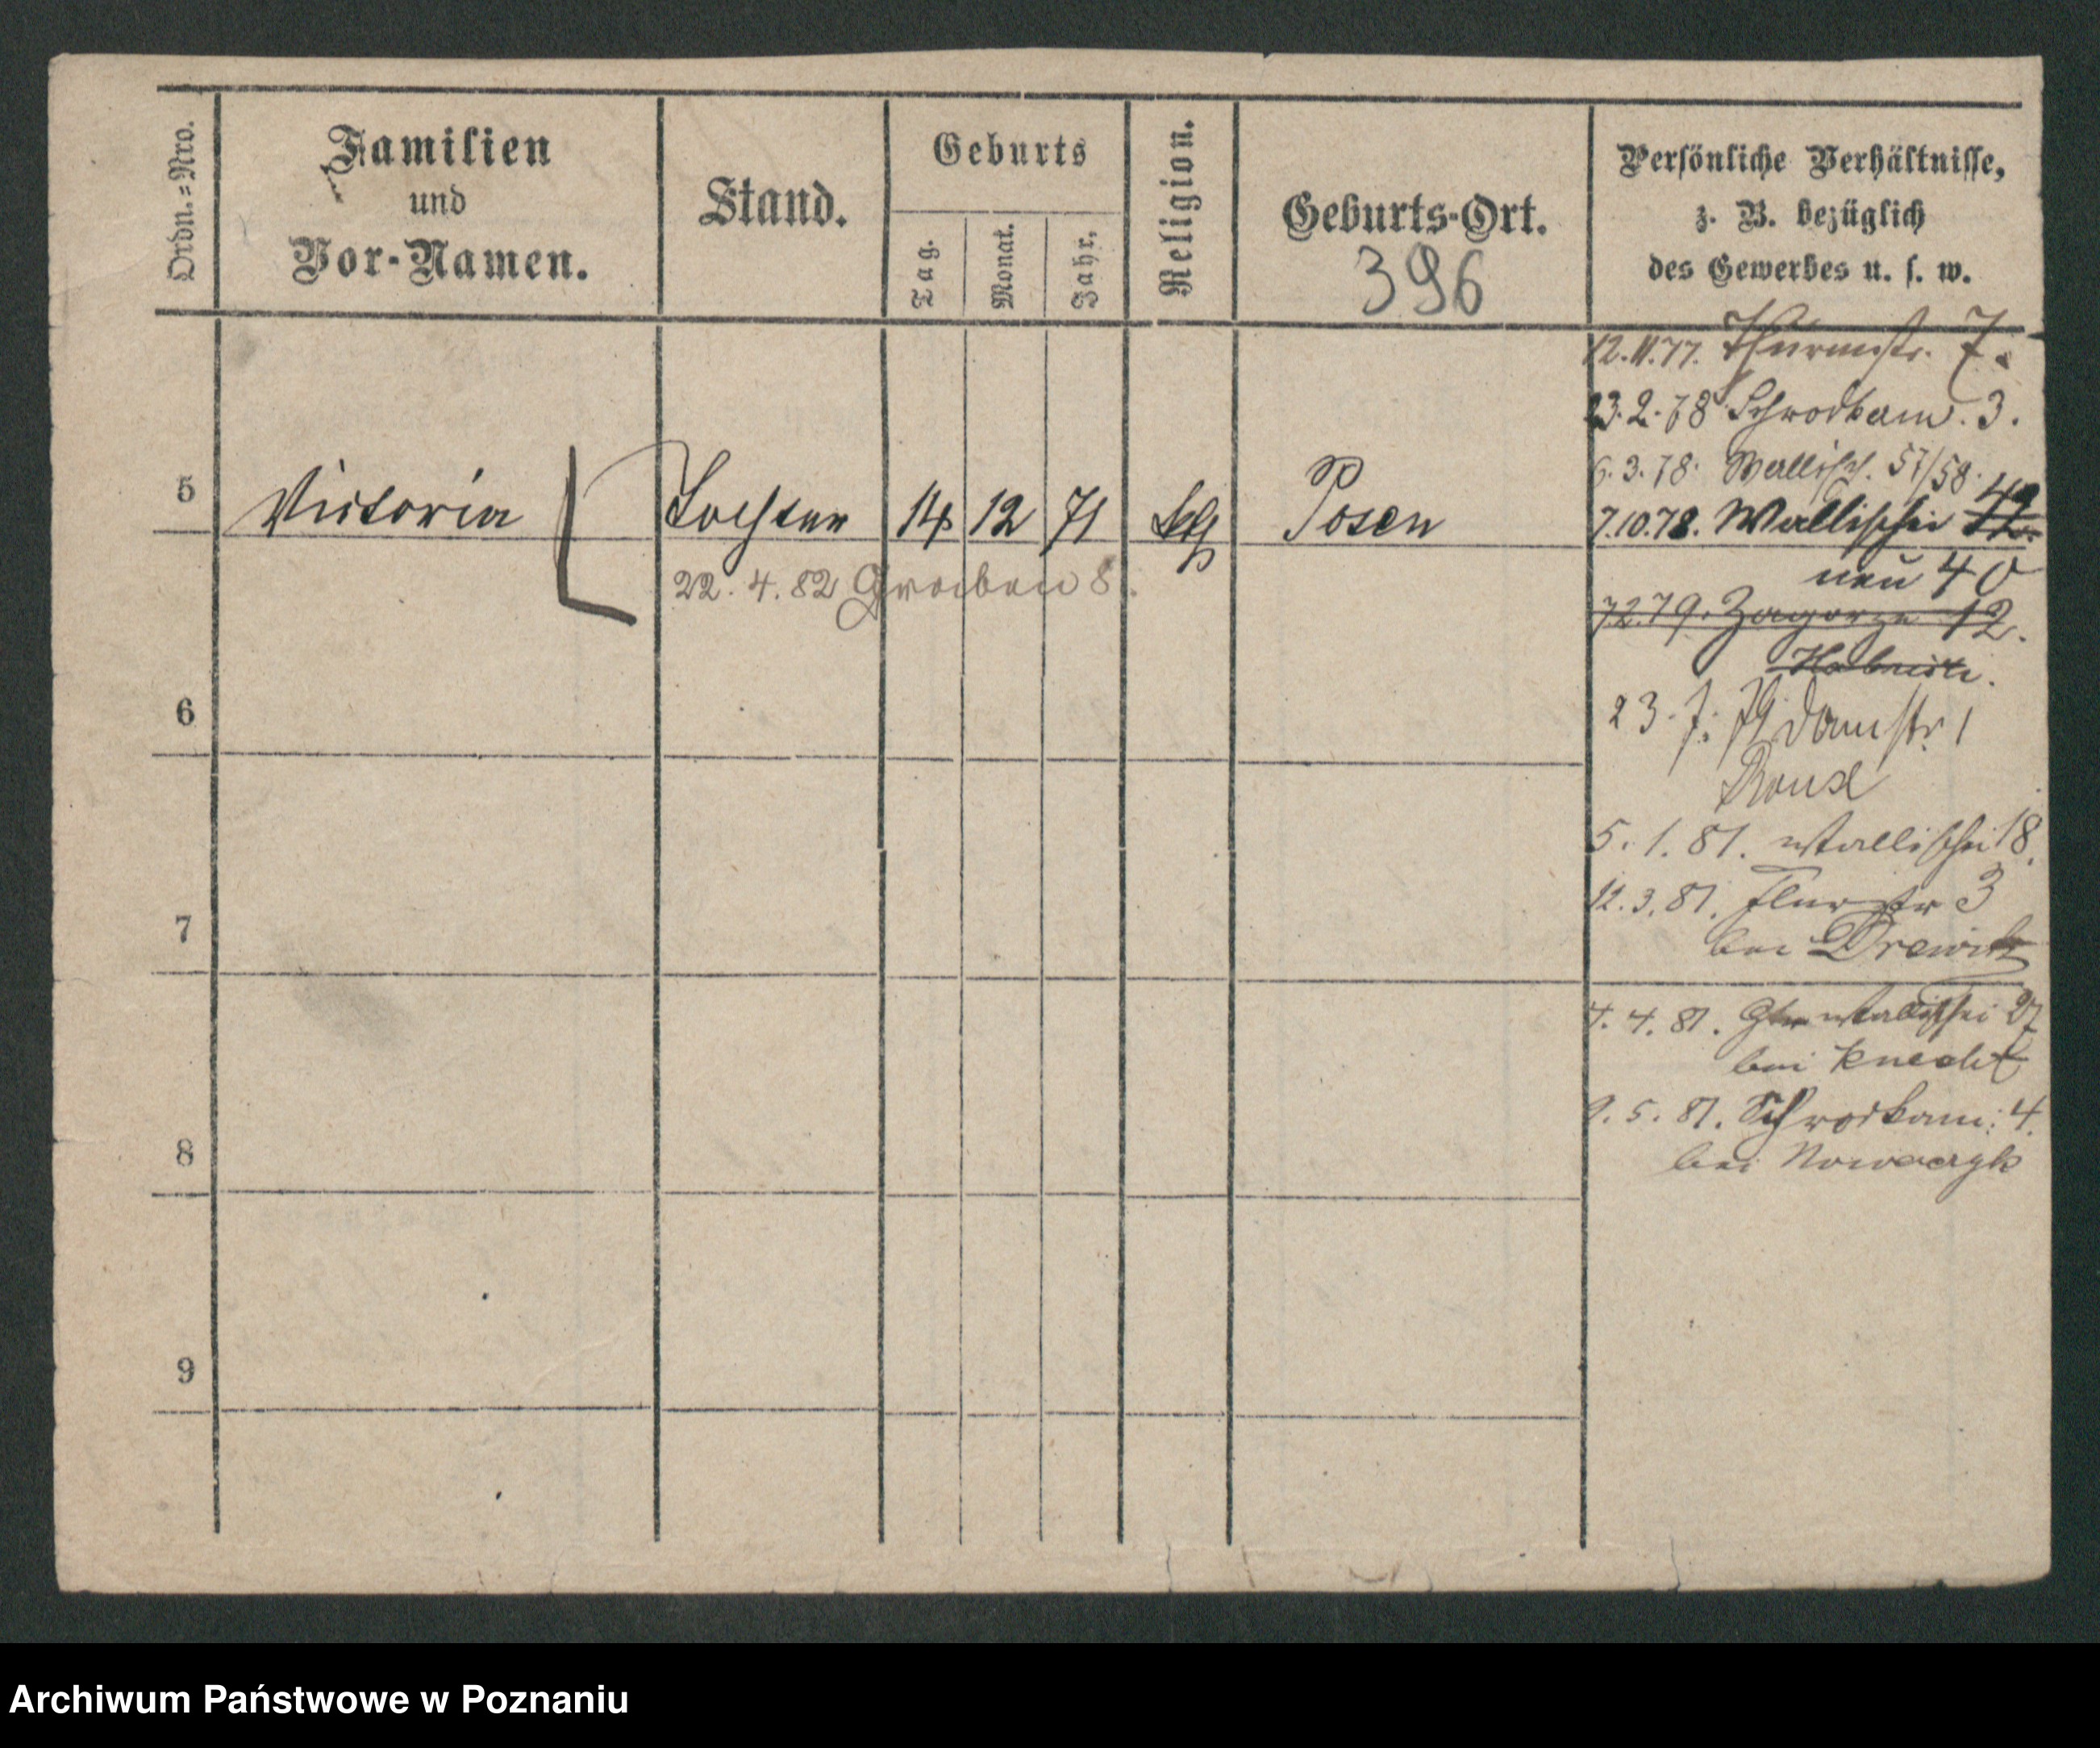 Ordn.=Nro.
Familien
und
Vor-Namen.
Stand.
Geburts
Tag.
Monat.
Jahr.
Religion.
Geburts-Ort.
396
Persönliche Verhältnisse,
z. B. bezüglich
des Gewerbes u. s. w.
12.11.77. Thurmstr. 7.
23.2.78 Schrodkam. 3.
6.3.78. Wallisch. 57/58.
5 Victoria Tochter 14 12 71 kth Posen
7.10.78. Wallischei 42
neu 40
22.4.82 Graben 8.
7.2.79. Zagorze 12.
6
23.7.79 Damstr. 1
5.1.81. Wallischei 18.
7
12.3.81. Flurstr 3
bei Drewitz
4.4.81. Wallischei 27
bei Knecht
8
9.5.81. Schrodkam: 4.
bei Nowaczyk
9
Archiwum Państwowe w Poznaniu